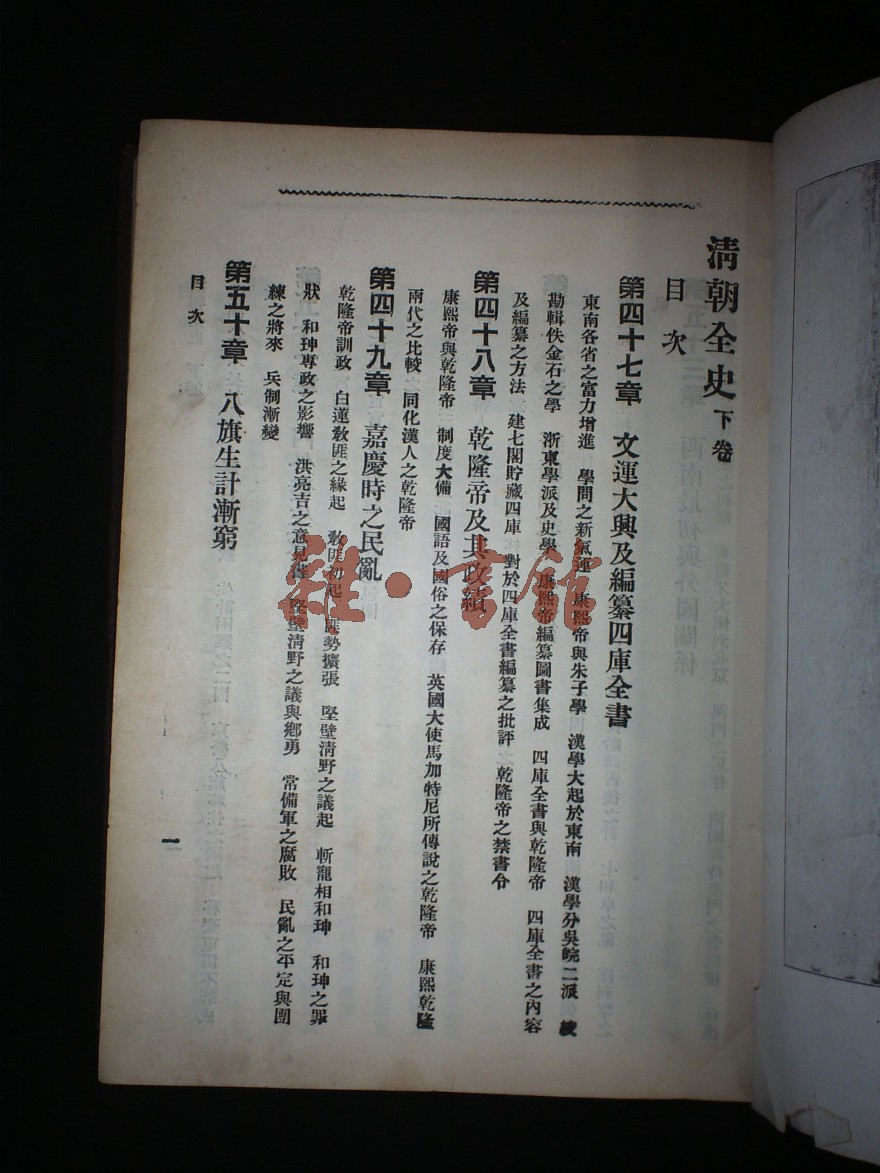 清朝全史 下卷
目次
第四十七章 文運大興及編纂四庫全書
東南各省之富力增進 學問之新氣運 康熙帝與朱子學 漢學大起於東南 漢學分吳皖二派
勘輯佚金石之學 浙東學派及史學 康熙帝編纂圖書集成 四庫全書與乾隆帝 四庫全書之內容
及編纂之方法 建七閣貯藏四庫 對於四庫全書編纂之批評 乾隆帝之禁書令
第四十八章 乾隆帝及其政績
康熙帝與乾隆帝 制度大備 國語及國俗之保存 英國大使馬加特尼所傳說之乾隆帝 康熙乾隆
兩代之比較 同化漢人之乾隆帝
第四十九章 嘉慶時之民亂
乾隆帝訓政 白蓮敎匪之緣起 敎匪初起 匪勢擴張 堅壁淸野之議起 斬寵相和珅 和珅之罪
狀 和珅專政之影響 洪亮吉之意見書 堅壁淸野之議與鄕勇 常備軍之腐敗 民亂之平定與團
練之將來 兵制漸變
第五十章 八旗生計漸窮
目次
一
雜·書館